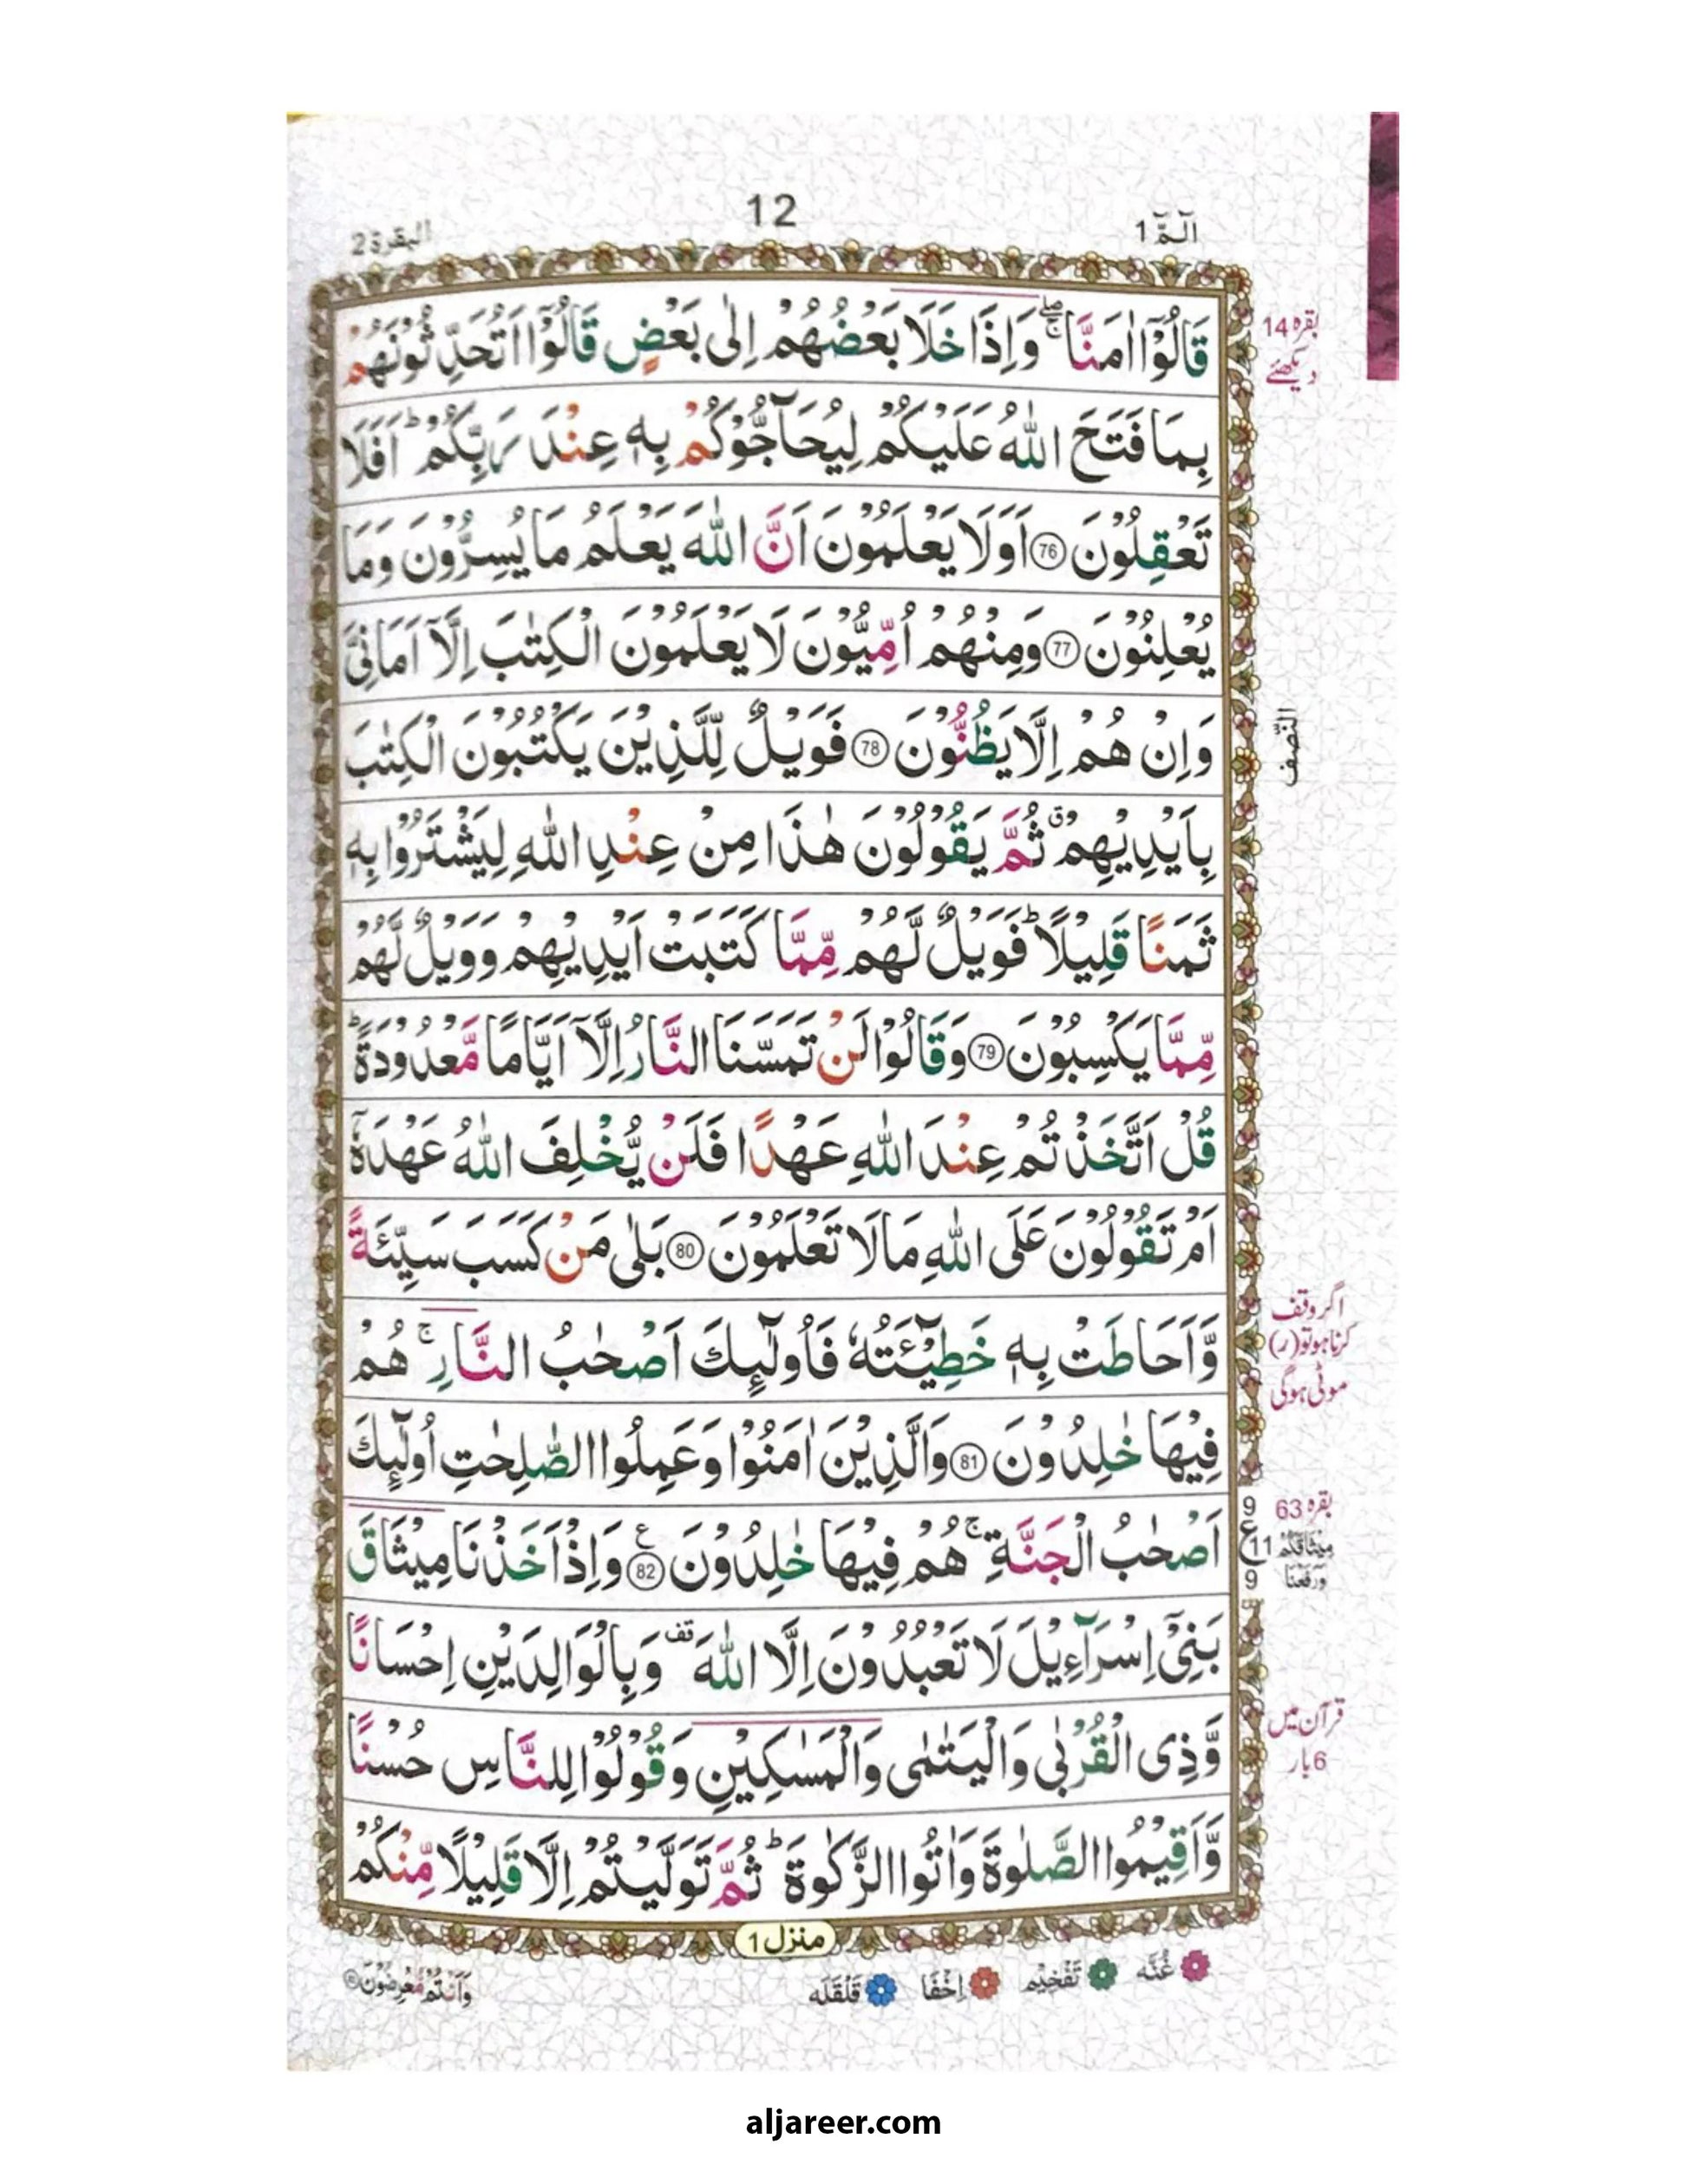 البقرة 2
12
الٓمّٓ 1
قَالُوْۤا اٰمَنَّا ۖۚ وَاِذَا خَلَا بَعْضُهُمْ اِلٰى بَعْضٍ قَالُوْۤا اَتُحَدِّثُوْنَهُمْ
بِمَا فَتَحَ اللّٰهُ عَلَيْكُمْ لِيُحَآجُّوْكُمْ بِهٖ عِنْدَ رَبِّكُمْ ؕ اَفَلَا
تَعْقِلُوْنَ 76 اَوَلَا يَعْلَمُوْنَ اَنَّ اللّٰهَ يَعْلَمُ مَا يُسِرُّوْنَ وَمَا
يُعْلِنُوْنَ 77 وَمِنْهُمْ اُمِّيُّوْنَ لَا يَعْلَمُوْنَ الْكِتٰبَ اِلَّاۤ اَمَانِيَّ
وَاِنْ هُمْ اِلَّا يَظُنُّوْنَ 78 فَوَيْلٌ لِّلَّذِيْنَ يَكْتُبُوْنَ الْكِتٰبَ
بِاَيْدِيْهِمْ ۗ ثُمَّ يَقُوْلُوْنَ هٰذَا مِنْ عِنْدِ اللّٰهِ لِيَشْتَرُوْا بِهٖ
ثَمَنًا قَلِيْلًا ؕ فَوَيْلٌ لَّهُمْ مِّمَّا كَتَبَتْ اَيْدِيْهِمْ وَوَيْلٌ لَّهُمْ
مِّمَّا يَكْسِبُوْنَ 79 وَقَالُوْا لَنْ تَمَسَّنَا النَّارُ اِلَّاۤ اَيَّامًا مَّعْدُوْدَةً ؕ
قُلْ اَتَّخَذْتُمْ عِنْدَ اللّٰهِ عَهْدًا فَلَنْ يُّخْلِفَ اللّٰهُ عَهْدَهٗۤ
اَمْ تَقُوْلُوْنَ عَلَى اللّٰهِ مَا لَا تَعْلَمُوْنَ 80 بَلٰى مَنْ كَسَبَ سَيِّئَةً
وَّاَحَاطَتْ بِهٖ خَطِيْٓـَٔتُهٗ فَاُولٰٓئِكَ اَصْحٰبُ النَّارِ ۚ هُمْ
فِيْهَا خٰلِدُوْنَ 81 وَالَّذِيْنَ اٰمَنُوْا وَعَمِلُوا الصّٰلِحٰتِ اُولٰٓئِكَ
اَصْحٰبُ الْجَنَّةِ ۚ هُمْ فِيْهَا خٰلِدُوْنَ 82 ع وَاِذْ اَخَذْنَا مِيْثَاقَ
بَنِيْۤ اِسْرَآءِيْلَ لَا تَعْبُدُوْنَ اِلَّا اللّٰهَ قف وَبِالْوَالِدَيْنِ اِحْسَانًا
وَّذِي الْقُرْبٰى وَالْيَتٰمٰى وَالْمَسٰكِيْنِ وَقُوْلُوْا لِلنَّاسِ حُسْنًا
وَّاَقِيْمُوا الصَّلٰوةَ وَاٰتُوا الزَّكٰوةَ ؕ ثُمَّ تَوَلَّيْتُمْ اِلَّا قَلِيْلًا مِّنْكُمْ
بقرہ 14
دیکھئے
النّصف
اگر وقف
کرنا ہو تو (ر)
موٹی ہوگی
9
ع 11
9
بقرہ 63
مِيْثَاقَكُمْ
وَرَفَعْنَا
قرآن میں
6 بار
منزل 1
غُنَّه تَفْخِيْم اِخْفَا قَلْقَلَه
وَاَنْتُمْ مُّعْرِضُوْنَ
aljareer.com